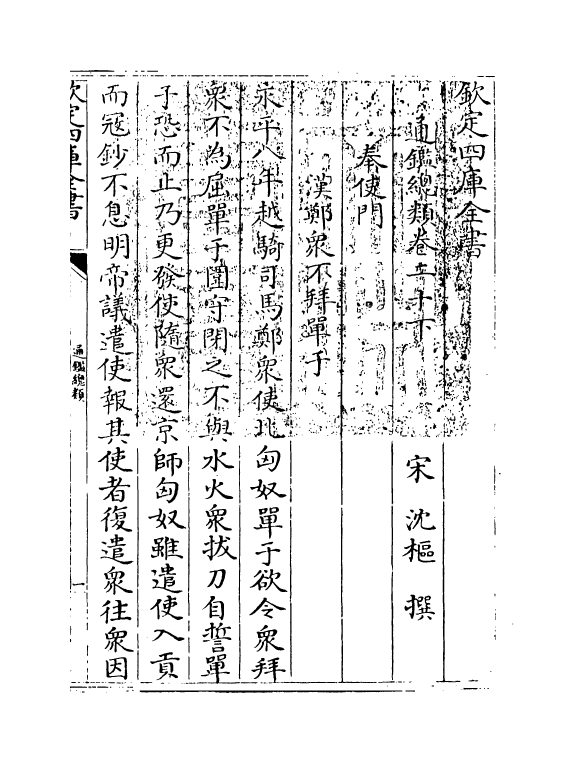 欽定四庫全書
通鑑總類卷二十下
宋 沈樞 撰
奉使門
漢鄭衆不拜單于
永平八年越騎司馬鄭衆使北匈奴單于欲令衆拜
衆不為屈單于圍守閉之不與水火衆拔刀自誓單
于恐而止乃更發使隨衆還京師匈奴雖遣使入貢
而冦鈔不息明帝議遣使報其使者復遣衆往衆因
欽定四庫全書
通鑑總類
一